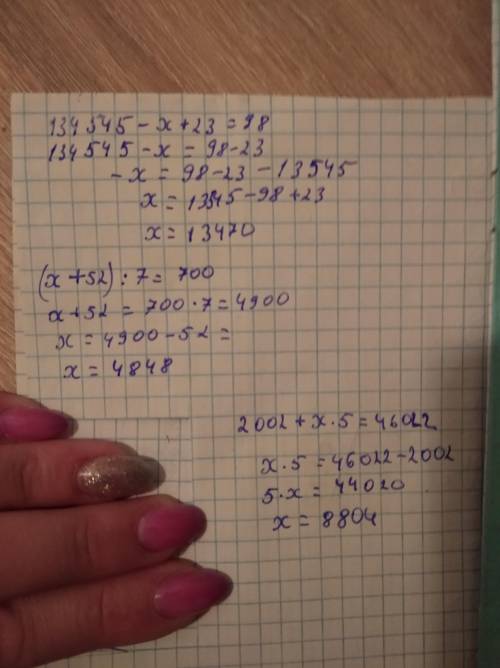 134545 - x + 23 = 98
134545 - x = 98 - 23
- x = 98 - 23 - 13545
x = 13545 - 98 + 23
x = 13470
(x + 52) : 7 = 700
x + 52 = 700 · 7 = 4900
x = 4900 - 52 =
x = 4848
2002 + x · 5 = 46022
x · 5 = 46022 - 2002
5 · x = 44020
x = 8804